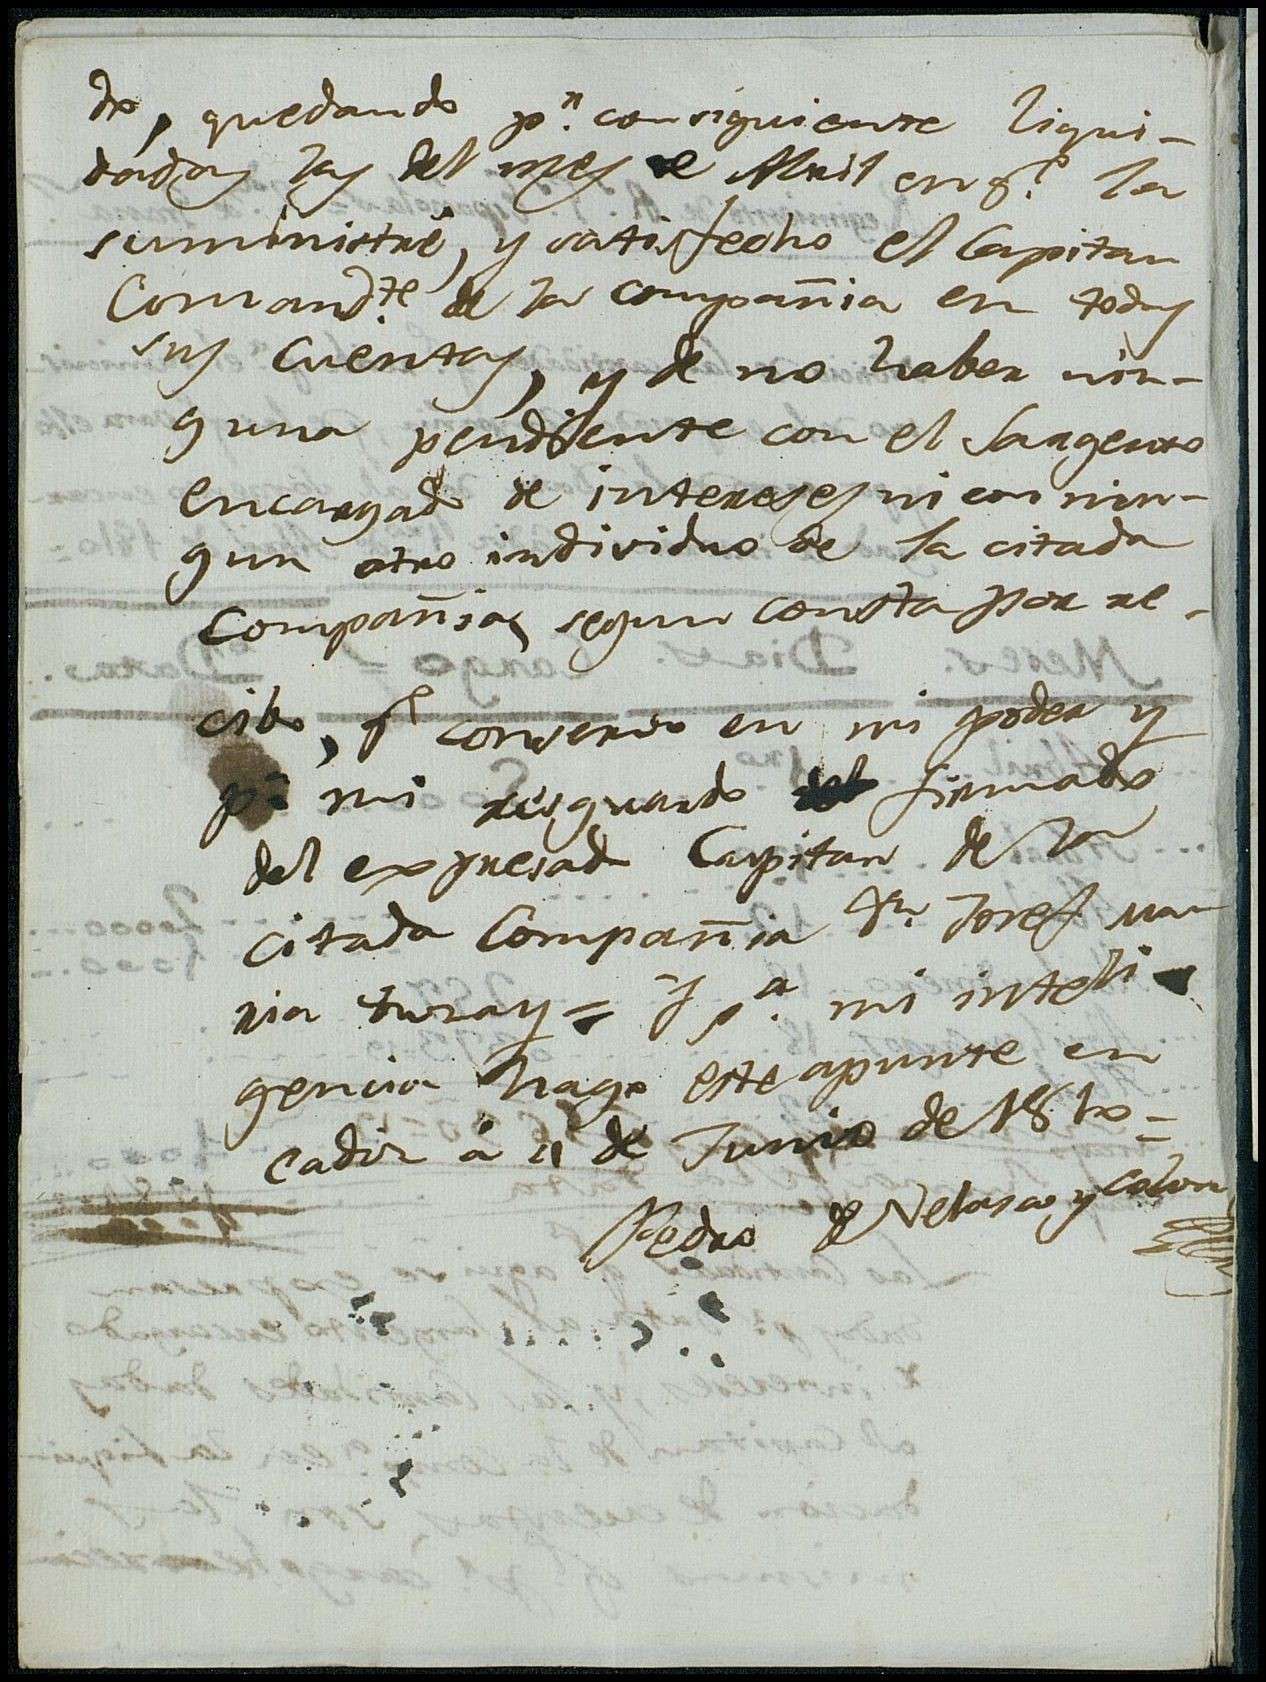 do, quedando p.n consiguiente liqui-
dadas las del mes de Abril en q.e la
suministré, y satisfecho el Capitan
Comand.te de la compañia en todas
sus Cuentas, y de no haber nin-
guna pendiente con el Sargento
encargado de intereses ni con nin-
gun otro individuo de la citada
Compañia, segun consta por re-
cibo, q.e conservo en mi poder y
p.a mi resguardo firmado
del expresado Capitan de la
citada Compañia D.n Josef Ma
ria = Y p.a mi inteli
gencia hago este apunte en
Cadiz á 11 de Junio de 1810=
Pedro de Velasco y Colon